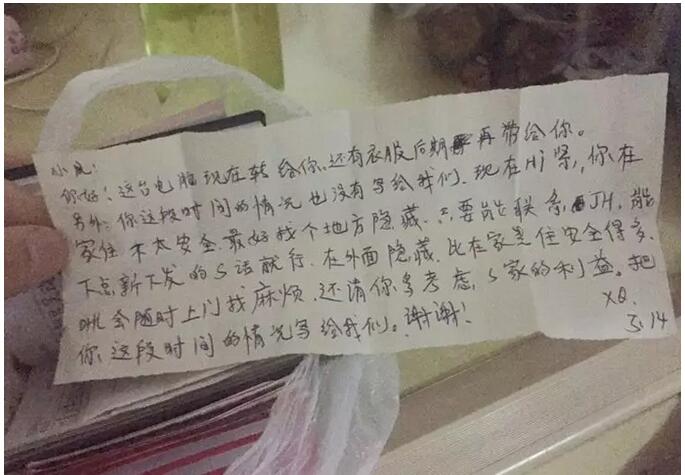 小风:
你好!这台电脑现在转给你,还有衣服后期再带给你。
另外:你这段时间的情况也没有写给我们。现在Hj紧,你在
家住不太安全,最好找个地方隐藏。只要能联系JH,能
下点新下发的S话就行。在外面隐藏,比在家里住安全得多。
会随时上门找麻烦,还请你多考虑,S家的利益。把
你这段时间的情况写给我们。谢谢!
XQ.
5.14